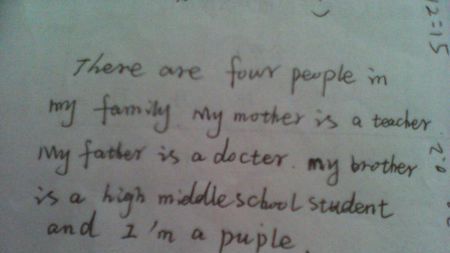 There are four people in
my family. My mother is a teacher
My father is a docter. my brother
is a high middle school student
and I'm a puple.
12=15